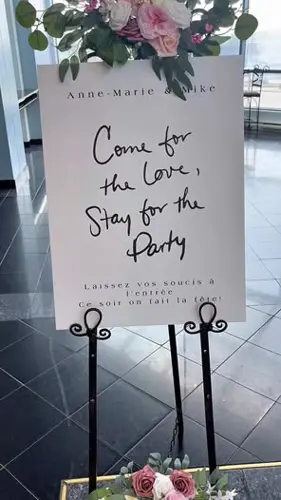 Anne-Marie & Mike
Come for
the love,
Stay for the
Party
Laissez vos soucis à
l'entrée
Ce soir on fait la fête!